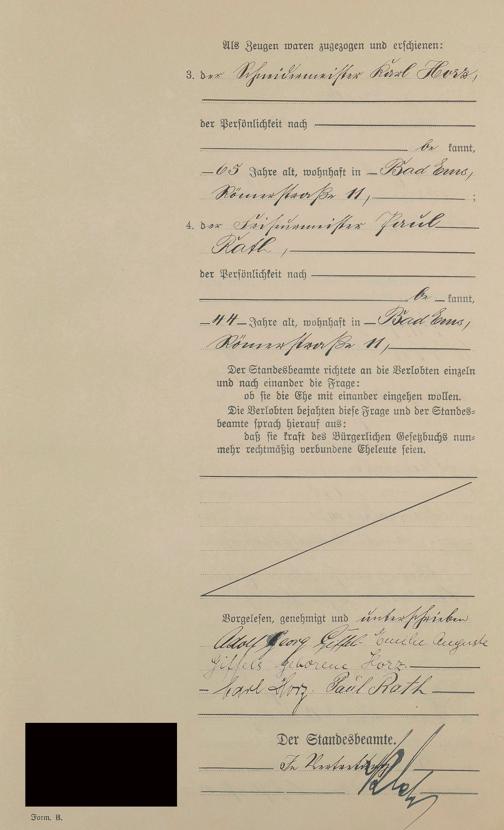 Als Zeugen waren zugezogen und erschienen:
3. der Schneidermeister Karl Horz,
der Persönlichkeit nach
be kannt,
65 Jahre alt, wohnhaft in Bad Ems,
Römerstraße 11, ;
4. der Friseurmeister Paul
Rath,
der Persönlichkeit nach
be kannt,
44 Jahre alt, wohnhaft in Bad Ems,
Römerstraße 11,
Der Standesbeamte richtete an die Verlobten einzeln
und nach einander die Frage:
ob sie die Ehe mit einander eingehen wollen.
Die Verlobten bejahten diese Frage und der Standes-
beamte sprach hierauf aus:
daß sie kraft des Bürgerlichen Gesetzbuchs nun-
mehr rechtmäßig verbundene Eheleute seien.
Vorgelesen, genehmigt und unterschrieben
Adolf Georg Emilie Auguste
geborene Horz
Karl Horz. Paul Rath
Der Standesbeamte.
In Vertretung
Form. B.